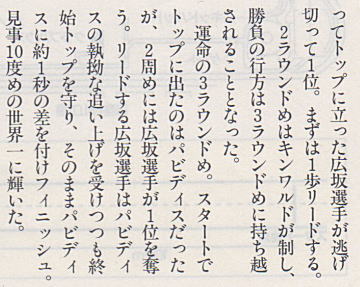 ってトップに立った広坂選手が逃げ
切って1位。まずは1歩リードする。
　2ラウンドめはキンワルドが制し、
勝負の行方は3ラウンドめに持ち越
されることとなった。
　運命の3ラウンドめ。スタートで
トップに出たのはパビディスだった
が、2周めには広坂選手が1位を奪
う。リードする広坂選手はパビディ
スの執拗な追い上げを受けつつも終
始トップを守り、そのままパビディ
スに約1秒の差を付けフィニッシュ。
見事10度めの世界一に輝いた。